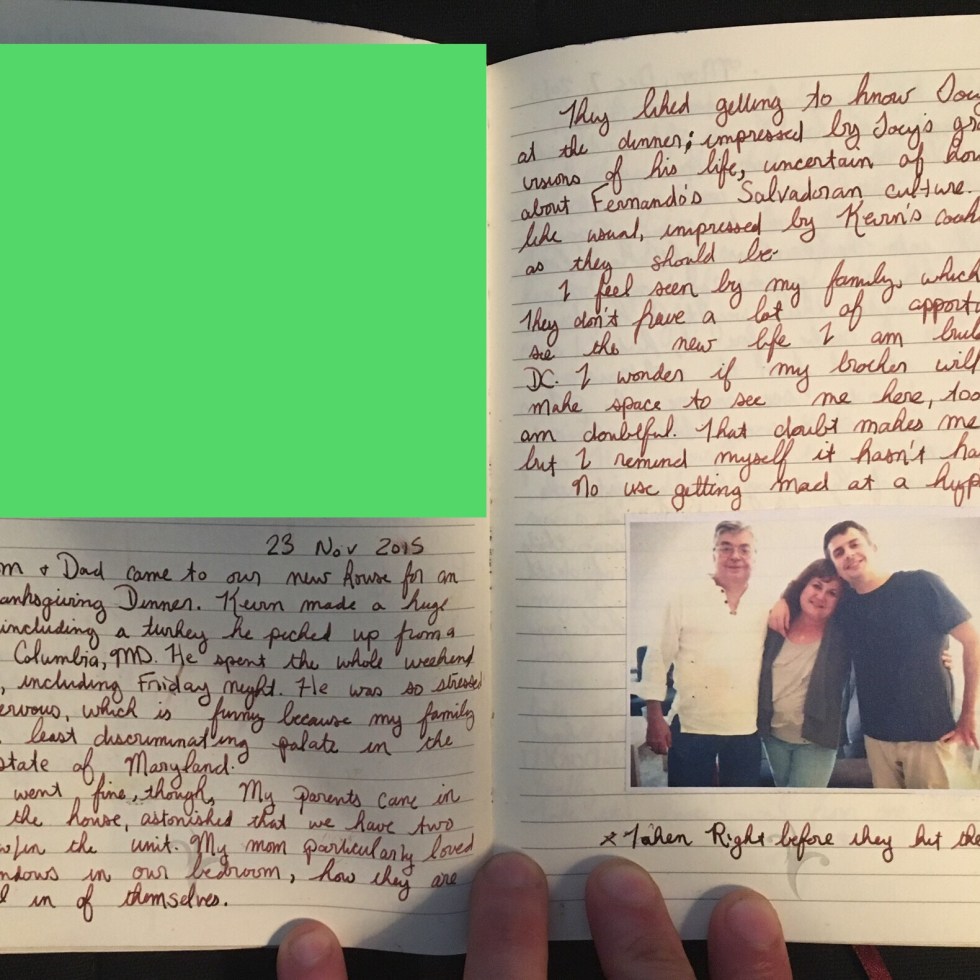 23 Nov 2015
m & Dad came to our new house for an
anksgiving Dinner. Kevin made a huge
including a turkey he picked up from a
Columbia, MD. He spent the whole weekend
, including Friday night. He was so stressed
ervous, which is funny because my family
least discriminating palate in the
state of Maryland.
went fine, though. My parents came in
the house, astonished that we have two
in the unit. My mom particularly loved
ndows in our bedroom, how they are
in of themselves.
They liked getting to know
at the dinner; impressed by Joey's
visions of his life, uncertain of
about Fernando's Salvadoran culture.
like usual, impressed by Kevin's
as they should be.
I feel seen by my family, which
They don't have a lot of
see the new life I am
DC. I wonder if my brother will
make space to see me here, too
am doubtful. That doubt makes me
but I remind myself it hasn't
No use getting mad at a
* Taken Right before they